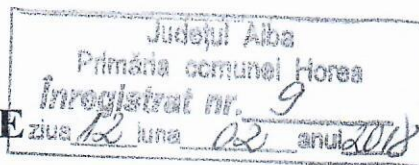 Județul Alba
Primăria comunei Horea
Înregistrat nr. 9
E ziua 12 luna 02 anul 2018